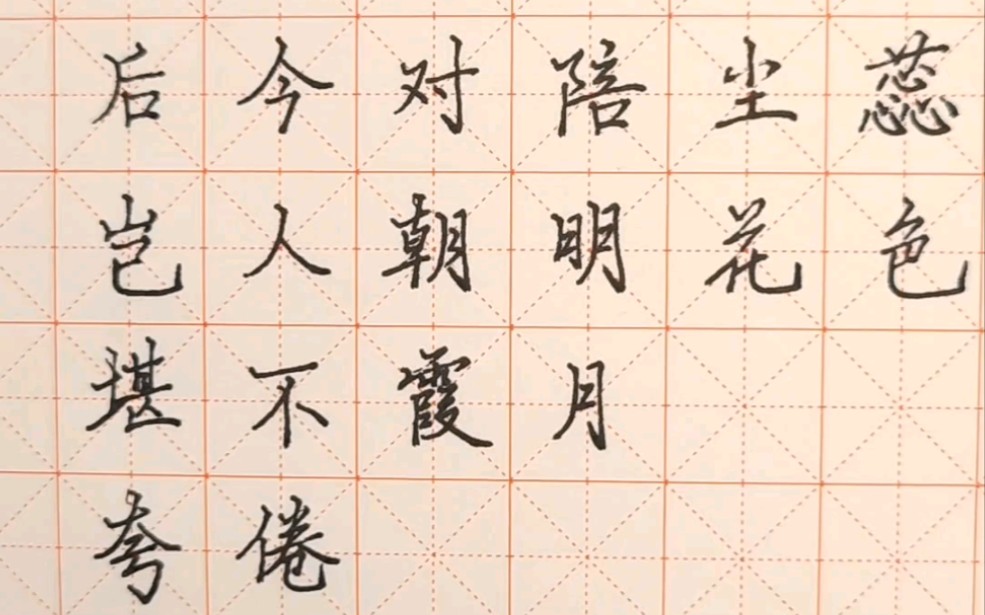 蕊色
尘花
陪明月
对朝霞
今人不倦
后岂堪夸